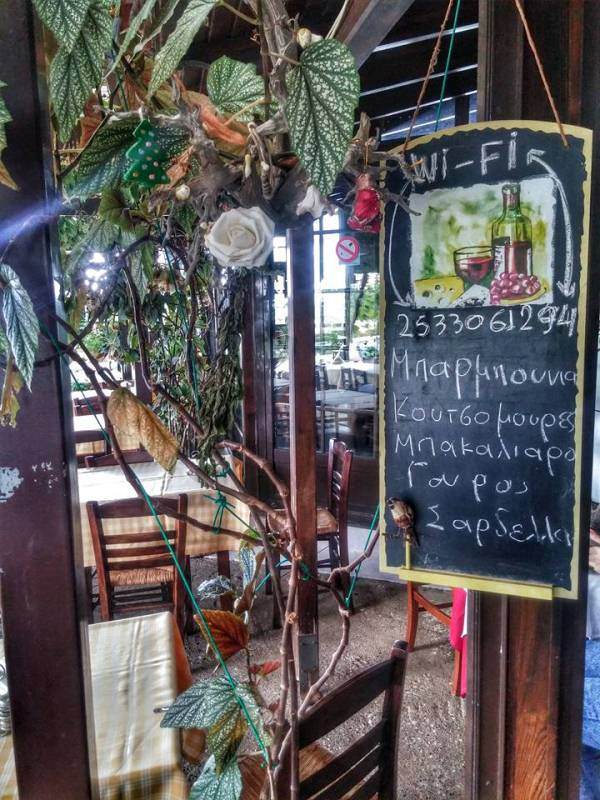 Wi-Fi
2533061294
Μπαρμπουνια
Κουτσομουρες
Μπακαλιαρο
Γαυρος
Σαρδελλα